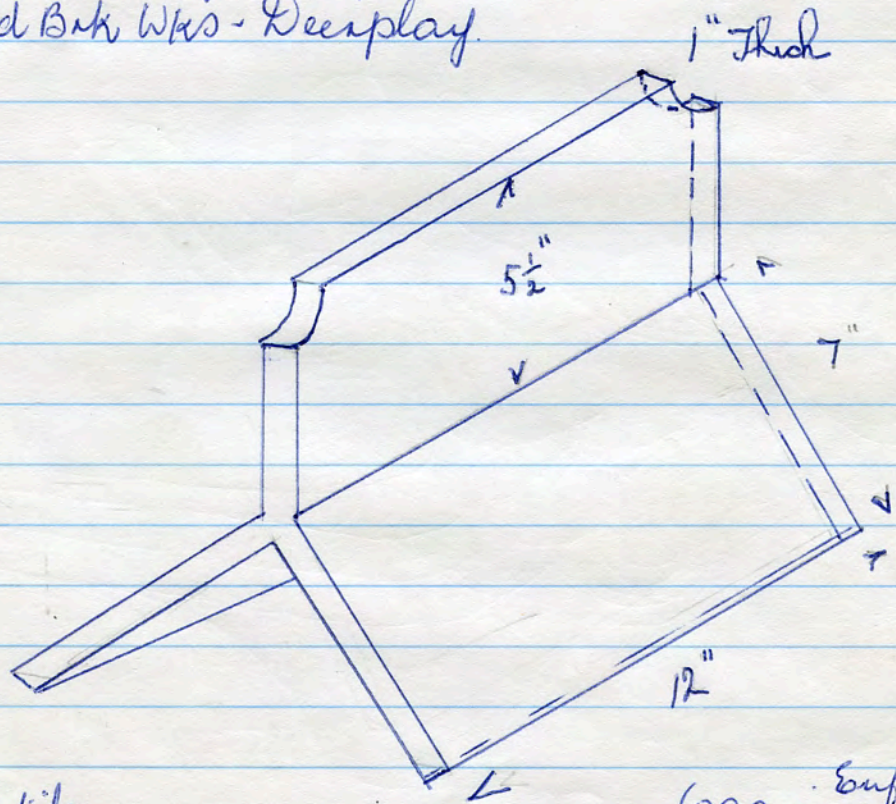 d Brk Wks - Deerplay.
1" Thick
5 1/2"
7"
12"